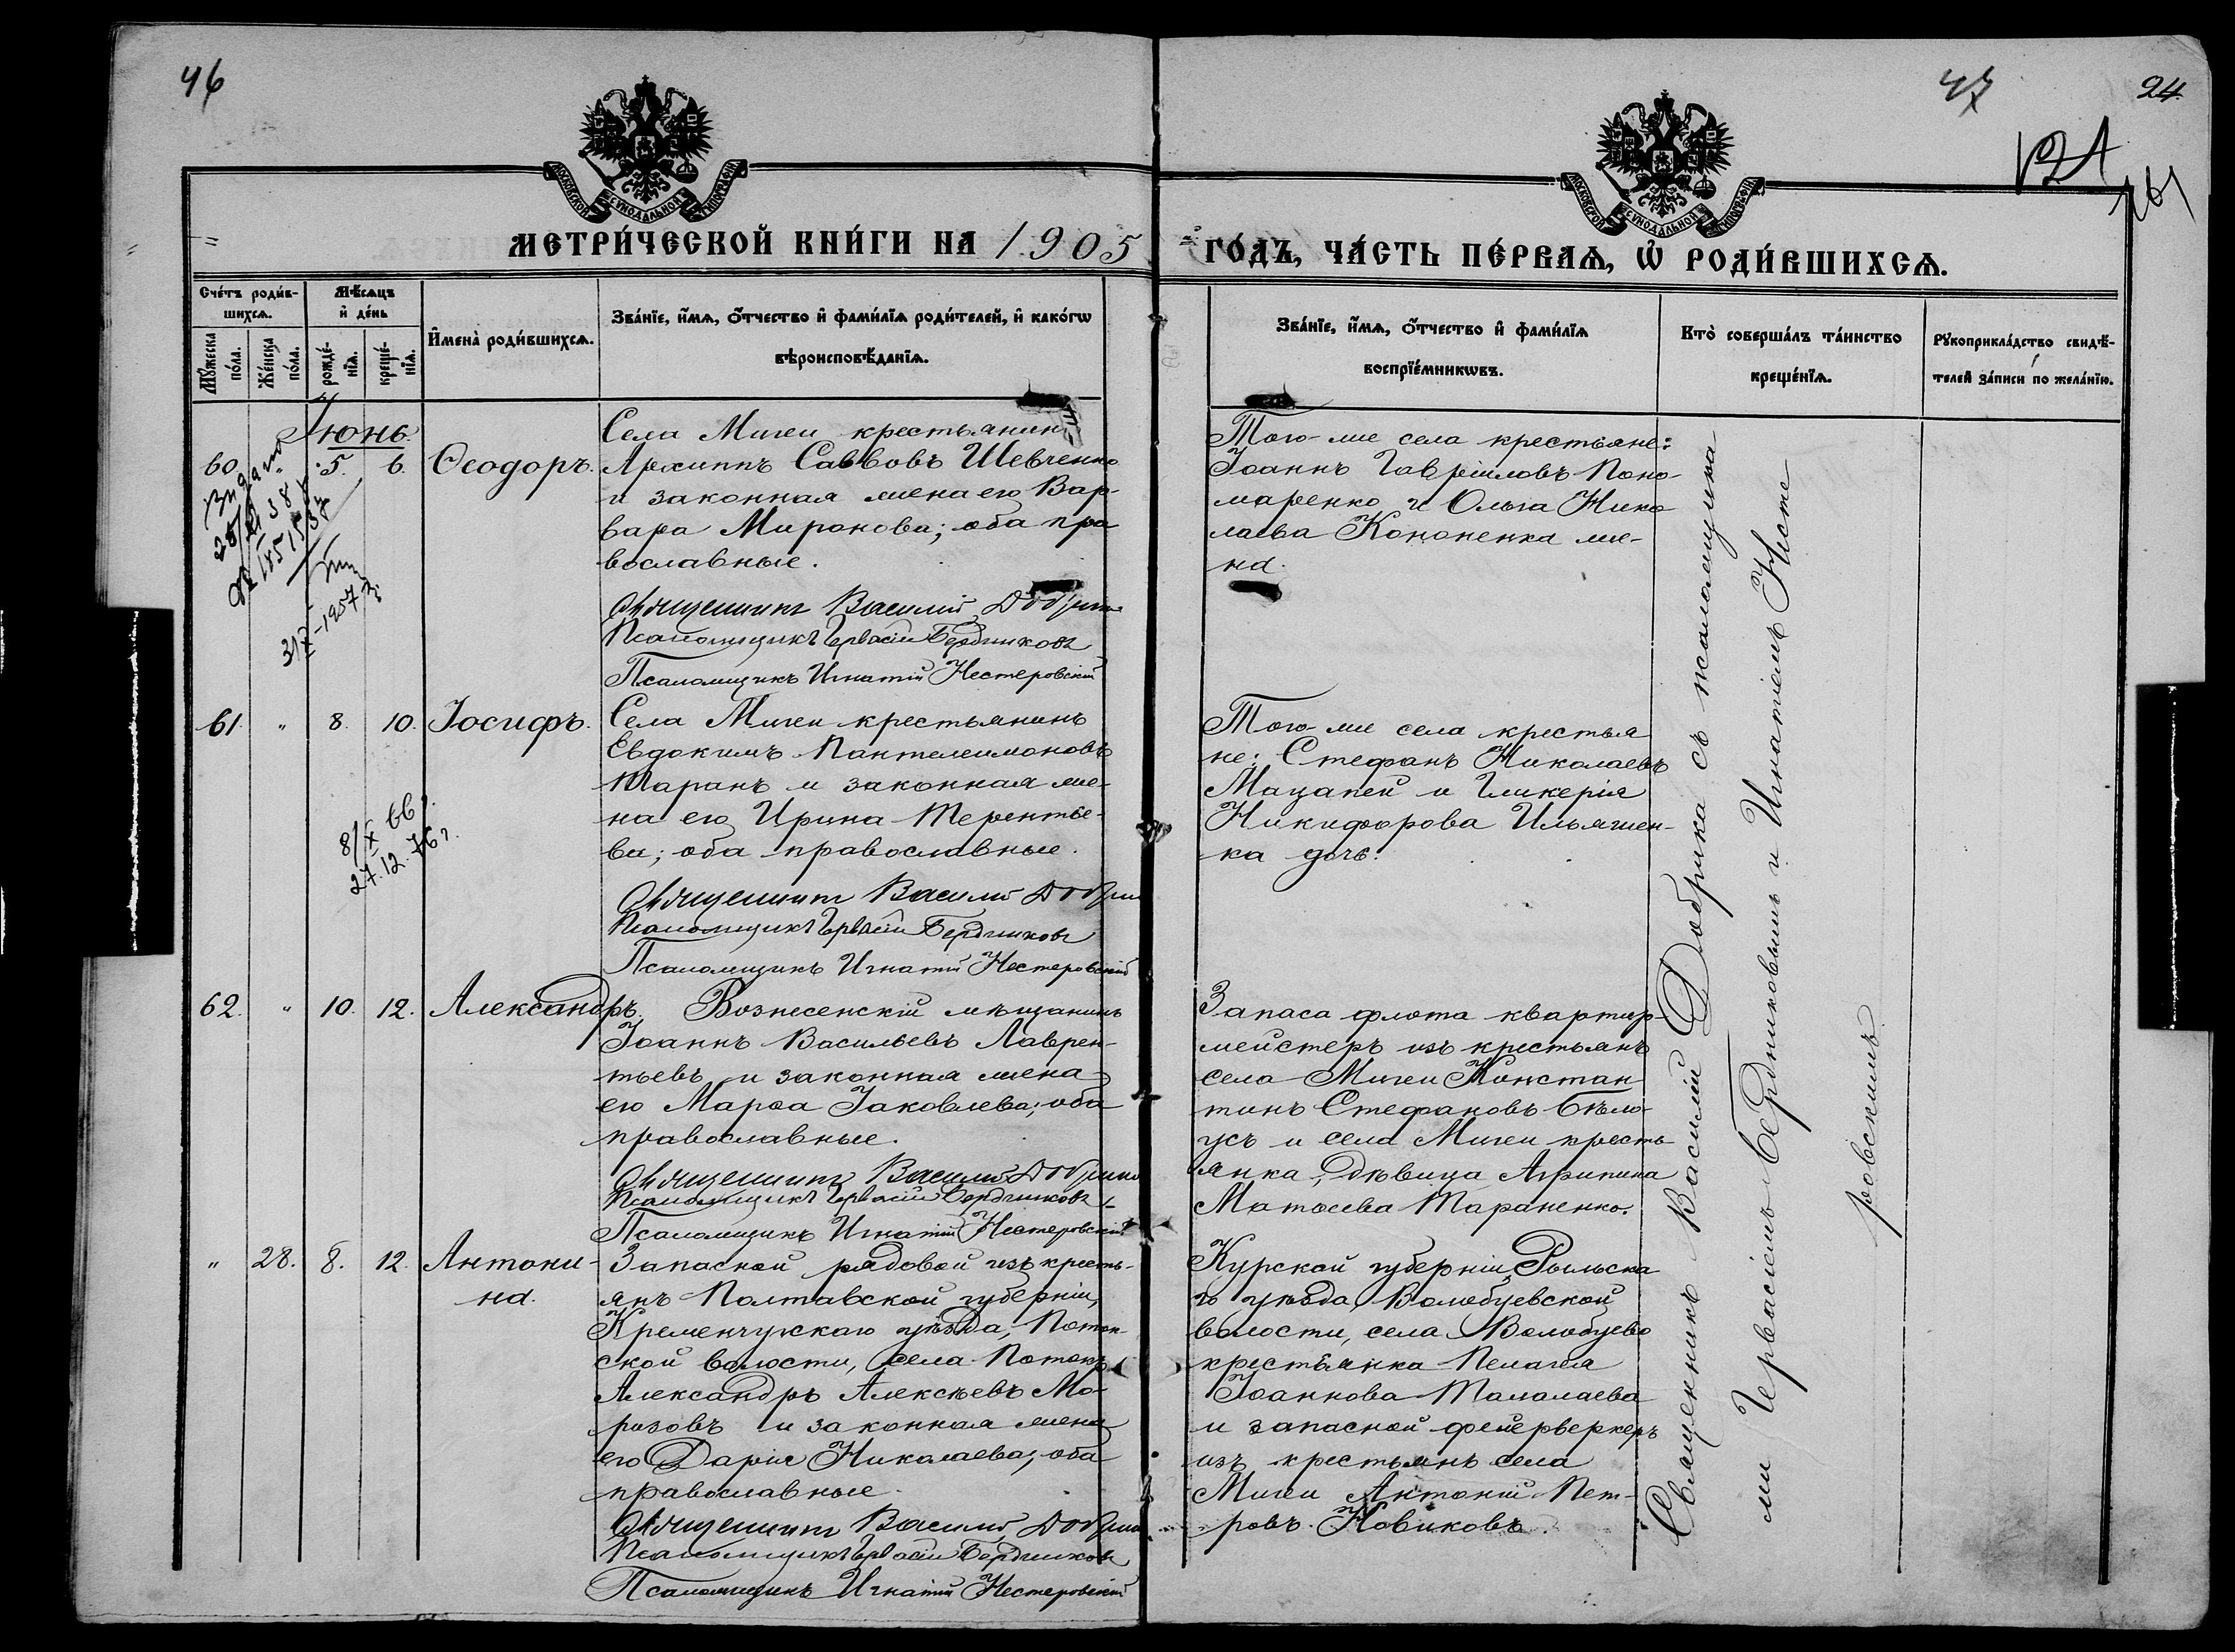 46
47
24
МОСКОВСКОЙ СѴНОДАЛЬНОЙ ТѴПОГРАФІИ
МОСКОВСКОЙ СѴНОДАЛЬНОЙ ТѴПОГРАФІИ
МЕТРИ́ЧЕСКОЙ КНИ́ГИ НА 1905 ГО́ДЪ, ЧА́СТЬ ПЕ́РВАѦ, Ѡ҆ РОДИ́ВШИХСѦ.
Счéтъ роди́в-
шихсѧ.
Мꙋ́жеска
по́ла.
Же́нска
по́ла.
Мѣ́сѧцъ
и҆ де́нь
рожде́-
нїѧ.
креще́-
нїѧ.
И҆мена̀ роди́вшихсѧ.
Зва́нїе, и҆́мѧ, ѻ҆́тчество и҆ фами́лїѧ роди́телей, и҆ како́гѡ
вѣроисповѣ́данїѧ.
Зва́нїе, и҆́мѧ, ѻ҆́тчество и҆ фами́лїѧ
воспрїе́мникѡвъ.
Кто̀ соверша́лъ та́инство
креще́нїѧ.
Рꙋкоприкла́дство свидѣ́-
телей за́писи по жела́нїю.
Іюнь.
60. " 5. 6. Ѳеодоръ.
Села Мигеи крестьянинъ
Архиппъ Саввовъ Шевченко
и законная жена его Вар-
вара Миронова; оба пра
вославные.
Священникъ Василій Добрика
Псаломщикъ Гервасій Бердниковъ
Псаломщикъ Игнатій Нестеровскій
Того-же села крестьяне:
Іоаннъ Гавріиловъ Поно-
маренко и Ольга Нико
лаева Кононенка же-
на.
31/X-1957 г.
61. " 8. 10. Іосифъ.
Села Мигеи крестьянинъ
Евдокимъ Пантелеимоновъ
Таранъ и законная же-
на его Ирина Терентье-
ва; оба православные.
Священникъ Василій Добрика
Псаломщикъ Гервасій Бердниковъ
Псаломщикъ Игнатій Нестеровскій
Того-же села крестья
не: Стефанъ Николаевъ
Мацапей и Гликерія
Никифорова Ильяшен-
ка дочь.
8/X 66 г.
27.12.76 г.
62. " 10. 12. Александръ.
Вознесенскій мѣщанинъ
Іоаннъ Васильевъ Лаврен-
тьевъ и законная жена
его Марѳа Іаковлева; оба
православные.
Священникъ Василій Добрика
Псаломщикъ Гервасій Бердниковъ
Псаломщикъ Игнатій Нестеровскій
Запаса флота квартир-
мейстеръ изъ крестьянъ
села Мигеи Констан
тинъ Стефановъ Бѣло-
усъ и села Мигеи кресть
янка, дѣвица Агрипина
Матѳеева Тараненко.
" 28. 8. 12. Антони-
на.
Запасной рядовой изъ кресть-
янъ Полтавской губерніи,
Кременчугскаго уѣзда, Поток-
ской волости, села Потокъ
Александръ Алексѣевъ Мо-
розовъ и законная жена
его Дарія Николаева; оба
православные.
Священникъ Василій Добрика
Псаломщикъ Гервасій Бердниковъ
Псаломщикъ Игнатій Нестеровскій
Курской губерніи, Рыльска
го уѣзда, Волобуевской
волости, села Волобуево
крестьянка Пелагія
Іоаннова Малалаева
и запасной фейерверкеръ
изъ крестьянъ села
Мигеи Антоній Пет-
ровъ Новиковъ.
Священникъ Василій Добрика съ псаломщика
ми Гервасіемъ Бердниковымъ и Игнатіемъ Несте
ровскимъ